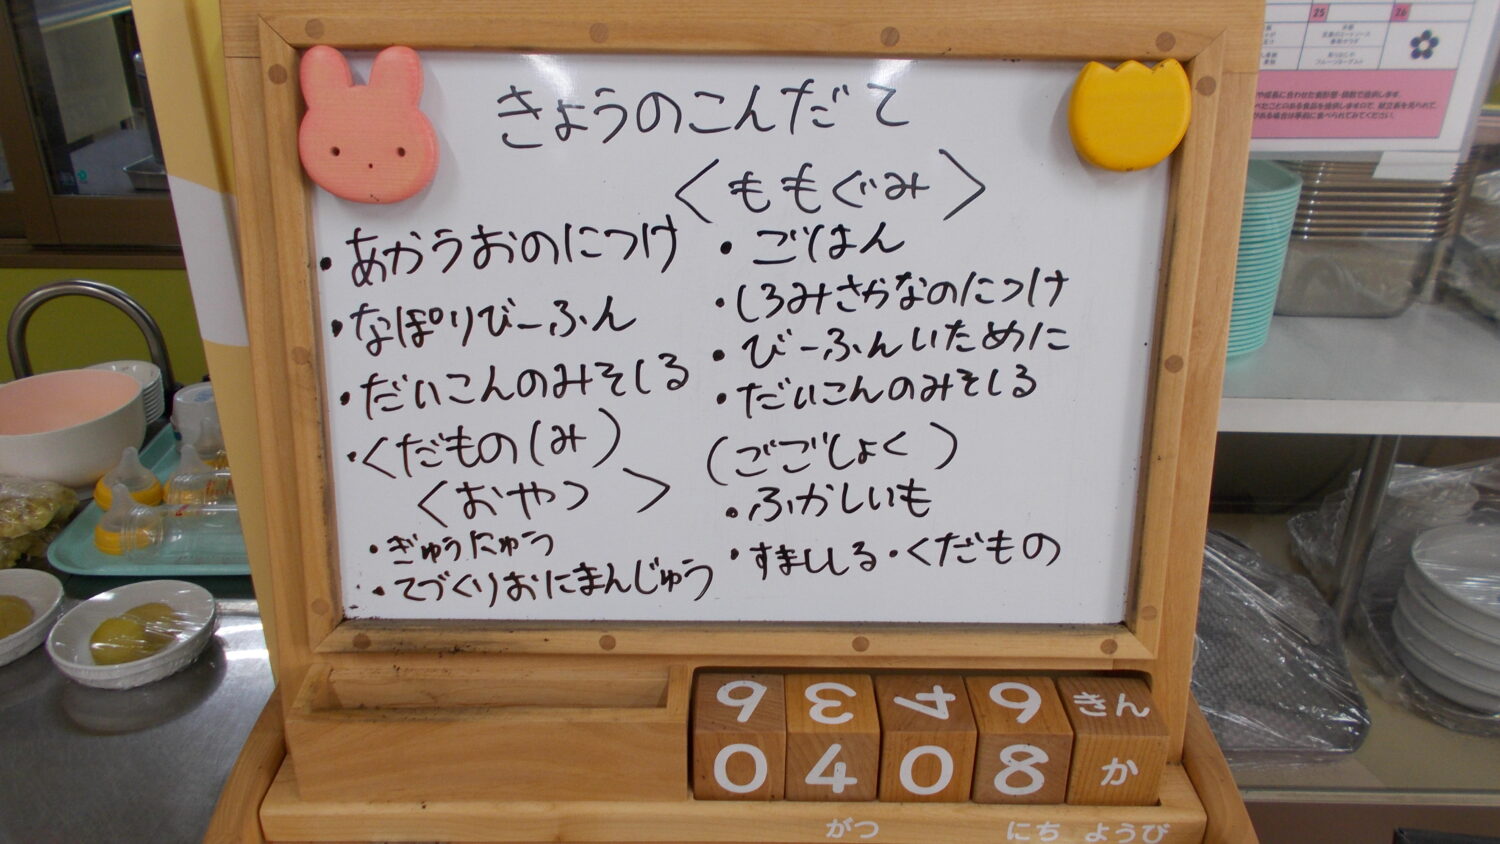 きょうのこんだて
・あかうおのにつけ
・なぽりびーふん
・だいこんのみそしる
・くだもの(み)
〈おやつ〉
・ぎゅうにゅう
・てづくりおにまんじゅう
〈ももぐみ〉
・ごはん
・しろみざかなのにつけ
・びーふんいために
・だいこんのみそしる
(ごごしょく)
・ふかしいも
・すましじる・くだもの
9 3 4 6 きん
0 4 0 8 か
がつ にち ようび
25 26